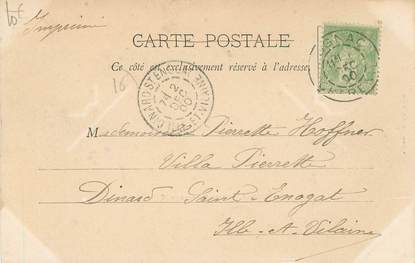 10€
Imprimé
CARTE POSTALE
Ce côté est exclusivement réservé à l'adresse
DINARD ST ENOGAT
ILLE ET VILAINE
2
DEC
00
Mademoiselle Pierrette Hoffner
Villa Pierrette
Dinard Saint-Enogat
Ille-et-Vilaine